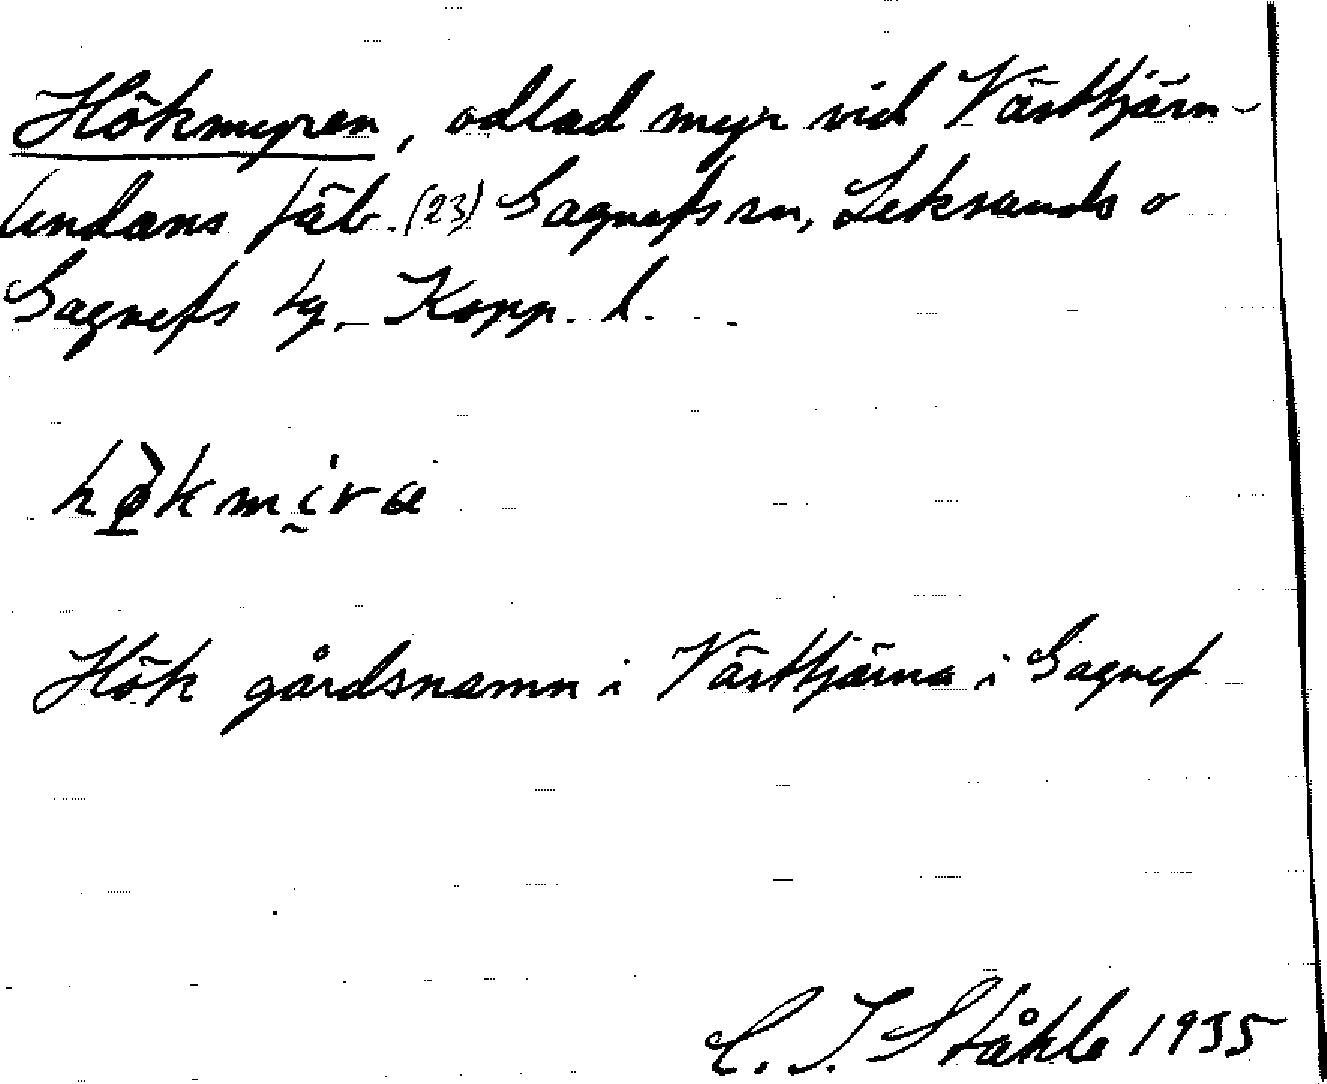 Hökmyren, odlad myr vid Västtjärn-
lindans fäb. (23) Gagnefs sn, Leksands o
Gagnefs tg. Kopp. l.
hø̀kmi̭ra
Hök gårdsnamn i Västtjärna i Gagnef
C. I. Ståhle 1935